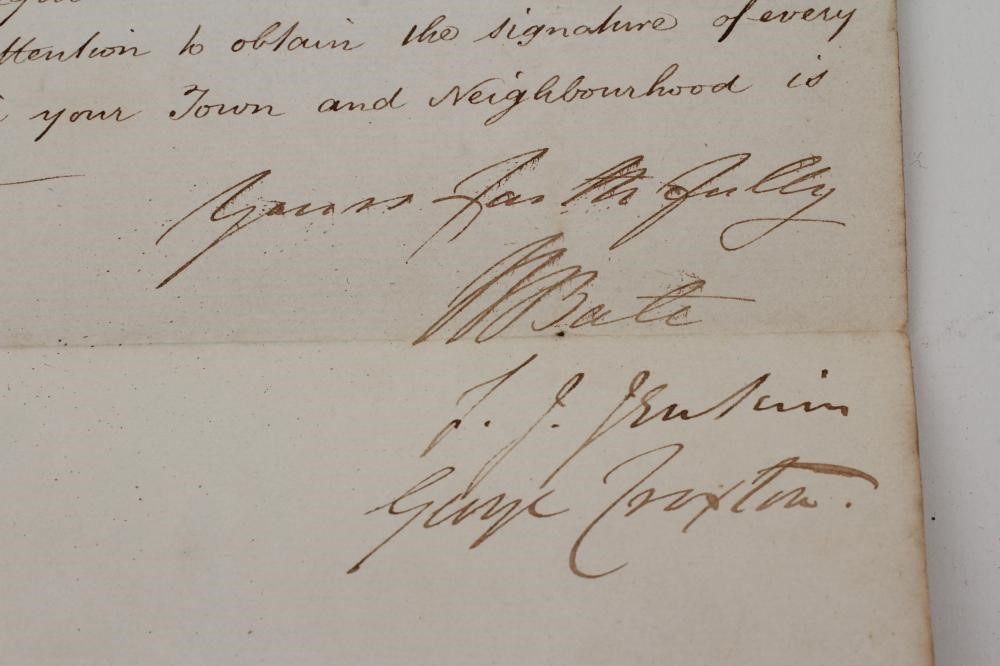 ttention to obtain the signature of every
your Town and Neighbourhood is
Yours Faithfully
W Bate
J. J. Jenkins
George Croxton.